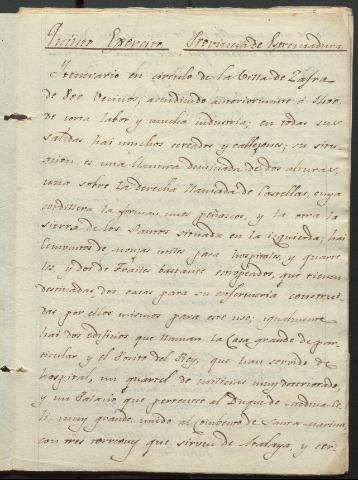 Quinto Exercito. Provincia de Estremadura
Itinerario en circulo de la Villa de Zafra
de 800 Vecinos, ascendiendo anteriormente á
de corta labor y mucha industria; en todas sus
salidas hai muchos cercados y callejones; su situa
cion, es una llanura dominada de dos alturas,
una sobre la derecha llamada de Castellar, cuya
cordillera la forman unos peñascos, y la otra la
sierra de los Santos situada en la izquierda; hai
Conventos de monjas utiles para hospitales, y quarte
les, y dos de Frailes bastante estropeados, que tienen
destinadas dos casas para su enfermeria construi
das por ellos mismos para este uso; igualmente
hai dos edificios que llaman la Casa grande de par
ticular y el Pósito del Rey, que han servido de
hospital, un quartel de milicias muy deteriorado,
y un Palacio que pertenece al Duque de Medina Ce
li muy grande, unido al Combento de Santa Marina,
con tres torreones que sirven de Atalaya, y cer